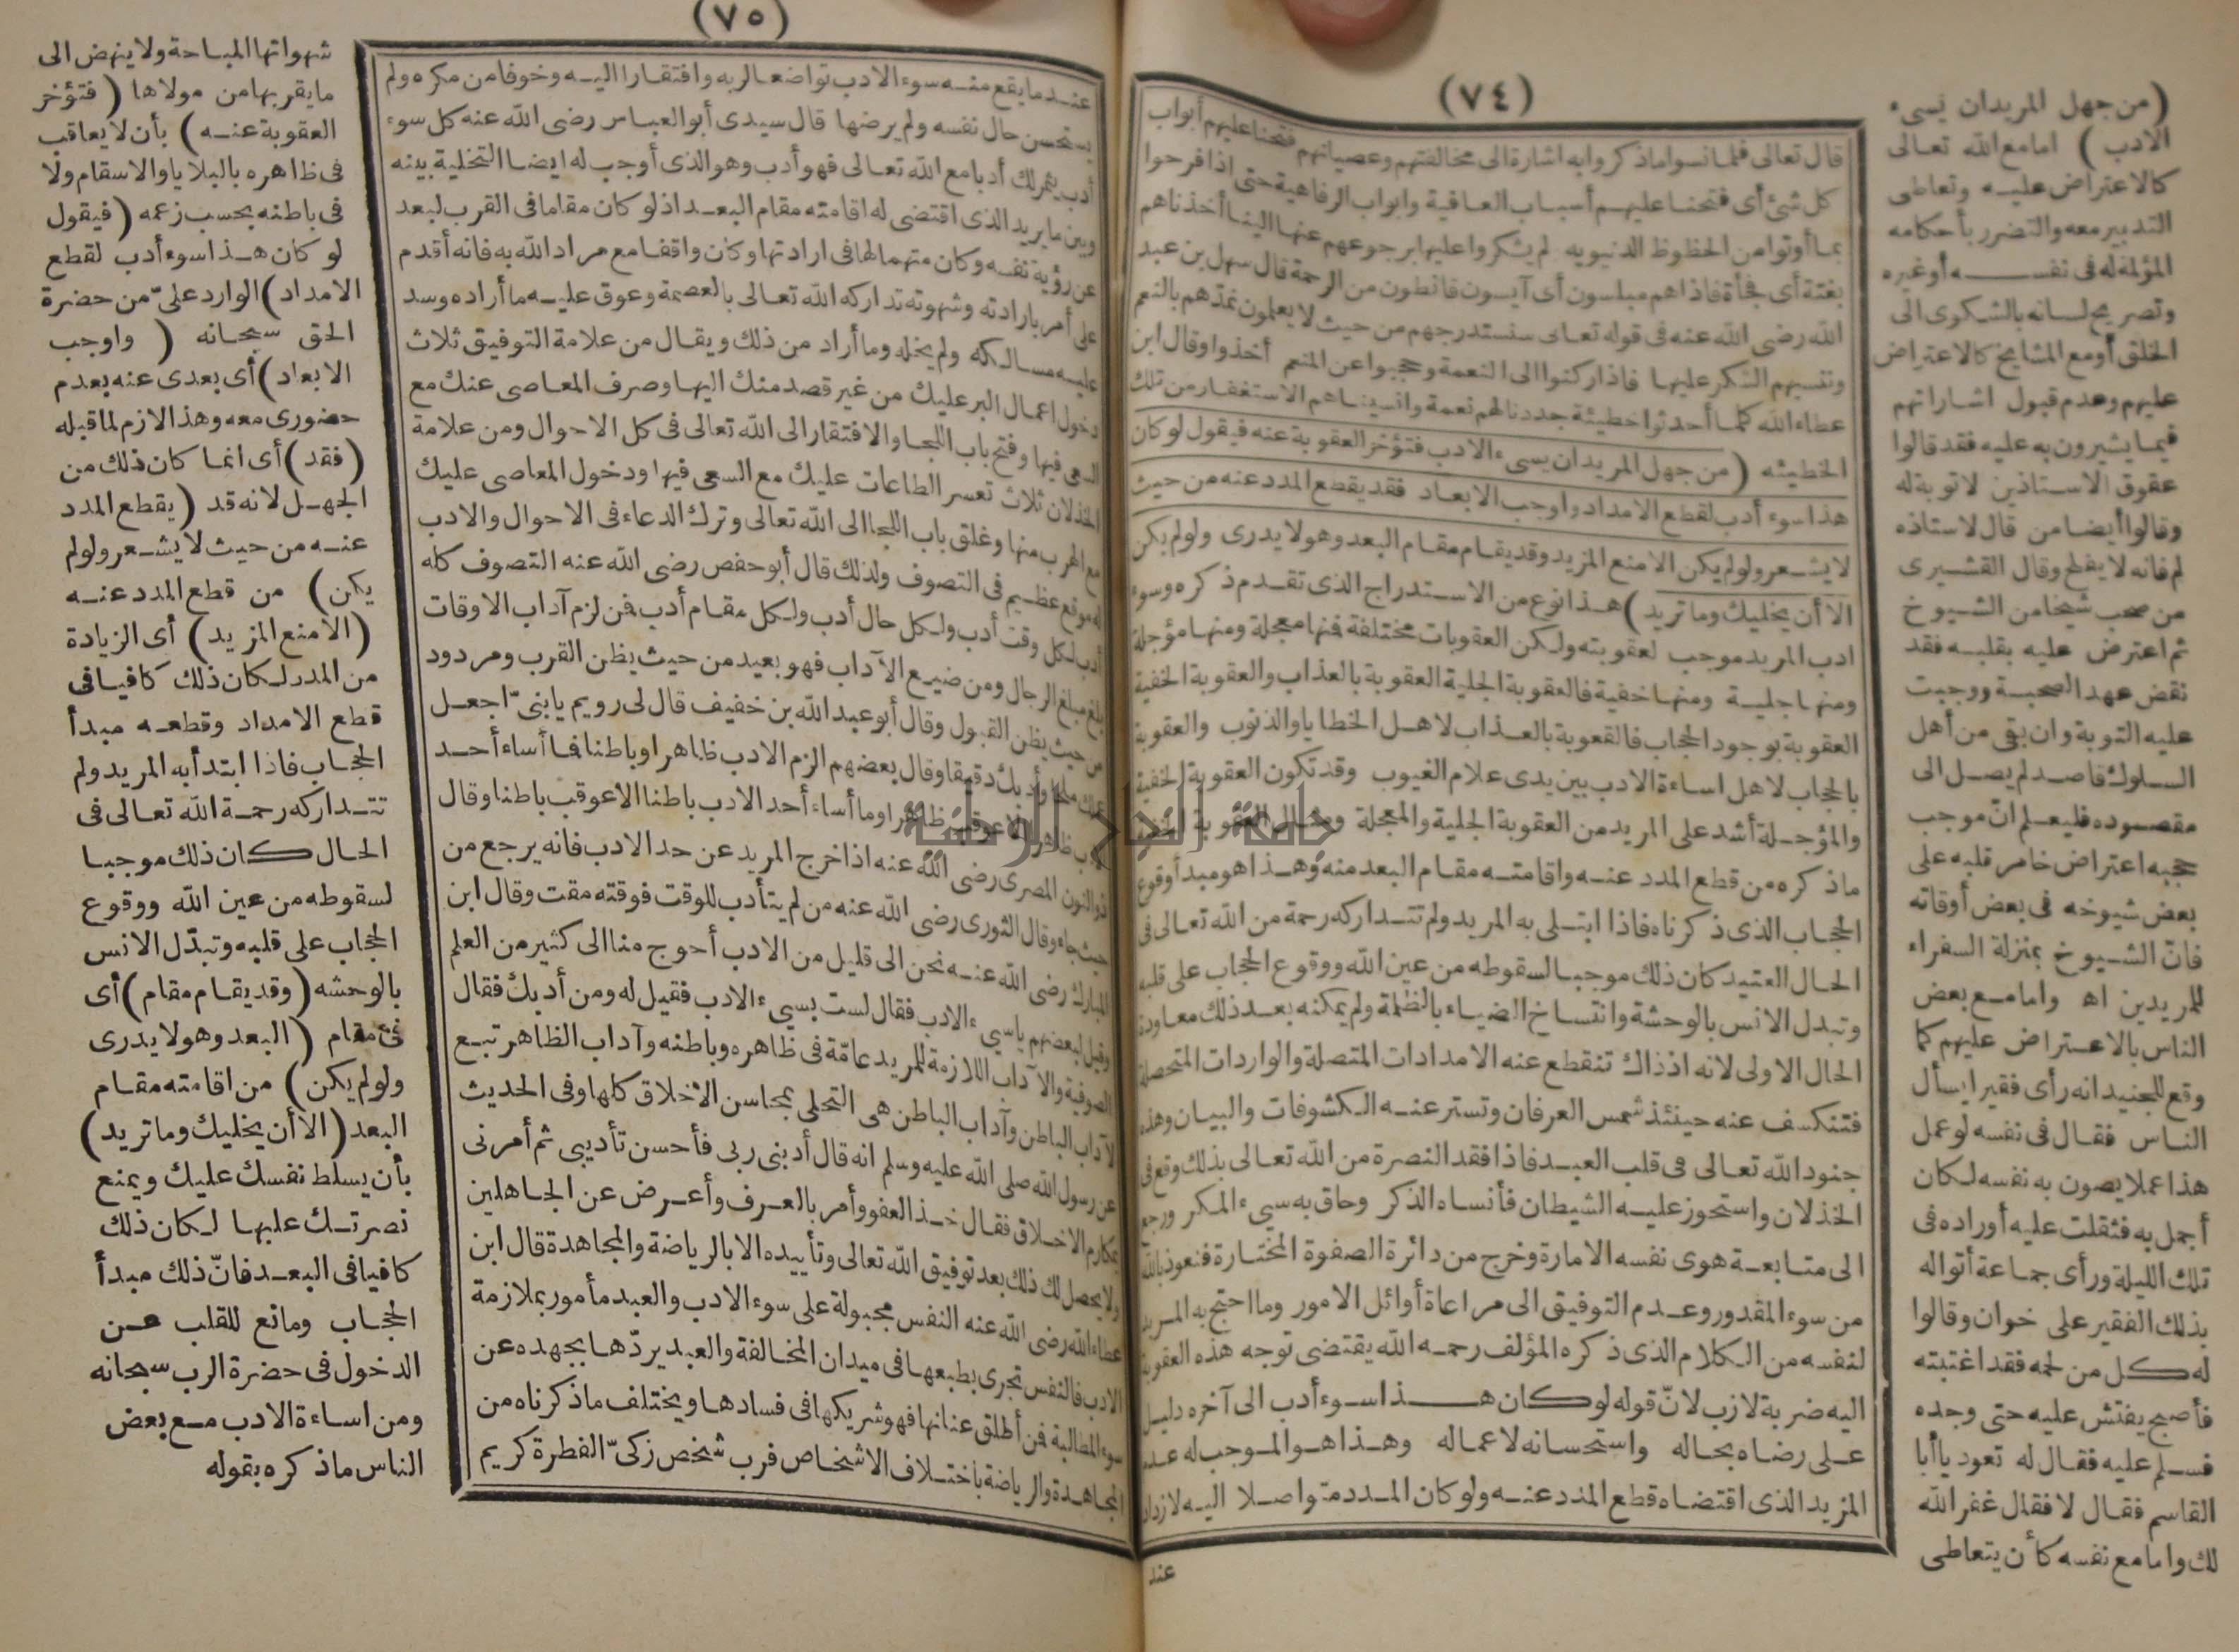 (٧٤)
قال تعالى فلما نسوا ما ذكروا به اشارة الى مخالفتهم وعصيانهم فتحنا عليهم أبواب
كل شئ أى فتحنا عليهم أسباب العافية وابواب الرفاهية حتى اذا فرحوا
بما أوتوا من الحظوظ الدنيويه لم يشكروا عليها برجوعهم عنها الينا أخذناهم
بغتة أى فجأة فاذا هم مبلسون أى آيسون قانطون من الرحمة قال سهل بن عبد
الله رضى الله عنه فى قوله تعالى سنستدرجهم من حيث لا يعلمون نمدهم بالنعم
وننسيهم الشكر عليها فاذا ركنوا الى النعمة وحجبوا عن المنعم أخذوا وقال ابن
عطاء الله كلما أحدثوا خطيئة جددنا لهم نعمة وانسيناهم الاستغفار من تلك
الخطيئه (من جهل المريد ان يسىء الادب فتؤخر العقوبة عنه فيقول لو كان
هذا سوء أدب لقطع الامداد واوجب الابعاد فقد يقطع المدد عنه من حيث
لا يشعر ولو لم يكن الا منع المزيد وقد يقام مقام البعد وهو لا يدرى ولو لم يكن
الا أن يخليك وما تريد) هذا نوع من الاستدراج الذى تقدم ذكره وسوء
ادب المريد موجب لعقوبته ولكن العقوبات مختلفة فمنها معجلة ومنها مؤجلة
ومنها جلية ومنها خفية فالعقوبة الجلية العقوبة بالعذاب والعقوبة الخفية
العقوبة بوجود الحجاب فالقعوبة بالعذاب لاهل الخطايا والذنوب والعقوبة
بالحجاب لاهل اساءة الادب بين يدى علام الغيوب وقد تكون العقوبة الخفية
والمؤجلة أشد على المريد من العقوبة الجلية والمعجلة ومثال العقوبة الخفية
ما ذكره من قطع المدد عنه واقامته مقام البعد منه وهذا هو مبدأ وقوع
الحجاب الذى ذكرناه فاذا ابتلى به المريد ولم تتداركه رحمة من الله تعالى فى
الحال العتيد كان ذلك موجبا لسقوطه من عين الله ووقوع الحجاب على قلبه
وتبدل الانس بالوحشة وانتساخ الضياء بالظلمة ولم يمكنه بعد ذلك معاودة
الحال الاولى لانه اذذاك تنقطع عنه الامدادات المتصلة والواردات المتحصلة
فتنكسف عنه حينئذ شمس العرفان وتستر عنه الكشوفات والبيان وهذه
جنود الله تعالى فى قلب العبد فاذا فقد النصرة من الله تعالى بذلك وقع فى
الخذلان واستحوز عليه الشيطان فأنساه الذكر وحاق به سيىء المكر ورجع
الى متابعة هوى نفسه الامارة وخرج من دائرة الصفوة المختارة فنعوذ بالله
من سوء المقدور وعدم التوفيق الى مراعاة أوائل الامور وما احتج به المريد
لنفسه من الكلام الذى ذكره المؤلف رحمه الله يقتضى توجه هذه العقوبة
اليه ضربة لازب لانّ قوله لو كان هذا سوء أدب الى آخره دليل
على رضاه بحاله واستحسانه لاعماله وهذا هو الموجب له عدم
المزيد الذى اقتضاه قطع المدد عنه ولو كان المدد متواصلا اليه لازدان
عند
(من جهل المريد ان يسىء
الادب) اما مع الله تعالى
كالاعتراض عليه وتعاطى
التدبير معه والتضرر بأحكامه
المؤلمة له فى نفسه أو غيره
وتصريح لسانه بالشكوى الى
الخلق أو مع المشايخ كالاعتراض
عليهم وعدم قبول اشاراتهم
فيما يشيرون به عليه فقد قالوا
عقوق الاستاذين لا توبة له
وقالوا أيضا من قال لاستاذه
لم فانه لا يفلح وقال القشيرى
من صحب شيخا من الشيوخ
ثم اعترض عليه بقلبه فقد
نقض عهد الصحبة ووجبت
عليه التوبة وان بقى من أهل
السلوك قاصد لم يصل الى
مقصوده فليعلم انّ موجب
حجبه اعتراض خامر قلبه على
بعض شيوخه فى بعض أوقاته
فانّ الشيوخ بمنزلة السفراء
للمريدين اه واما مع بعض
الناس بالاعتراض عليهم كما
وقع للجنيد انه رأى فقيرا يسأل
الناس فقال فى نفسه لو عمل
هذا عملا يصون به نفسه لكان
أجمل به فثقلت عليه أوراده فى
تلك الليلة ورأى جماعة أتوا له
بذلك الفقير على خوان وقالوا
له كل من لحمه فقد اغتبته
فأصبح يفتش عليه حتى وجده
فسلم عليه فقال له تعود يا أبا
القاسم فقال لا فقال غفر الله
لك واما مع نفسه كأن يتعاطى
(٧٥)
عند ما يقع منه سوء الادب تواضعا لربه وافتقارا اليه وخوفا من مكره ولم
يستحسن حال نفسه ولم يرضها قال سيدى أبو العباس رضى الله عنه كل سوء
أدب يثمر لك أدبا مع الله تعالى فهو أدب وهو الذى أوجب له ايضا التخلية بينه
وبين ما يريد الذى اقتضى له اقامته مقام البعد اذ لو كان مقاما فى القرب لبعد
عن رؤية نفسه وكان متهما لها فى ارادتها وكان واقفا مع مراد الله به فانه أقدم
على أمر بارادته وشهوته تداركه الله تعالى بالعصمة وعوق عليه ما أراده وسد
عليه مسالكه ولم يخله وما أراد من ذلك ويقال من علامة التوفيق ثلاث
دخول اعمال البر عليك من غير قصد منك اليها وصرف المعاصى عنك مع
السعى فيها وفتح باب اللجا والافتقار الى الله تعالى فى كل الاحوال ومن علامة
الخذلان ثلاث تعسر الطاعات عليك مع السعى فيها ودخول المعاصى عليك
مع الهرب منها وغلق باب اللجا الى الله تعالى وترك الدعاء فى الاحوال والادب
له موقع عظيم فى التصوف ولذلك قال أبو حفص رضى الله عنه التصوف كله
أدب لكل وقت أدب ولكل حال أدب ولكل مقام أدب فمن لزم آداب الاوقات
بلغ مبلغ الرجال ومن ضيع الآداب فهو بعيد من حيث يظن القرب ومردود
من حيث يظن القبول وقال أبو عبد الله بن خفيف قال لى رويم يا بنىّ اجعل
عملك ملحا وأدبك دقيقا وقال بعضهم الزم الادب ظاهرا وباطنا فما أساء أحد
الادب ظاهرا الا عوقب ظاهرا وما أساء أحد الادب باطنا الا عوقب باطنا وقال
ذو النون المصرى رضى الله عنه اذا خرج المريد عن حد الادب فانه يرجع من
حيث جاء وقال الثورى رضى الله عنه من لم يتأدب للوقت فوقته مقت وقال ابن
المبارك رضى الله عنه نحن الى قليل من الادب أحوج منا الى كثير من العلم
وقيل لبعضهم يا سيىء الادب فقال لست بسيىء الادب فقيل له ومن أدبك فقال
الصوفية والآداب اللازمة للمريد عامّة فى ظاهره وباطنه وآداب الظاهر تبع
لآداب الباطن وآداب الباطن هى التحلى بمحاسن الاخلاق كلها وفى الحديث
عن رسول الله صلى الله عليه وسلم انه قال أدبنى ربى فأحسن تأديبى ثم أمرنى
بمكارم الاخلاق فقال خذ العفو وأمر بالعرف وأعرض عن الجاهلين
ولا يحصل لك ذلك بعد توفيق الله تعالى وتأييده الا بالرياضة والمجاهدة قال ابن
عطاء الله رضى الله عنه النفس مجبولة على سوء الادب والعبد مأمور بملازمة
الادب فالنفس تجرى بطبعها فى ميدان المخالفة والعبد يردّها بجهده عن
سوء المطالبة فمن أطلق عنانها فهو شريكها فى فسادها ويختلف ما ذكرناه من
المجاهدة والرياضة باختلاف الاشخاص فرب شخص زكىّ الفطرة كريم
شهواتها المباحة ولا ينهض الى
ما يقربها من مولاها (فتؤخر
العقوبة عنه) بأن لا يعاقب
فى ظاهره بالبلايا والاسقام ولا
فى باطنه بحسب زعمه (فيقول
لو كان هذا سوء أدب لقطع
الامداد) الوارد علىّ من حضرة
الحق سبحانه (واوجب
الابعاد) أى بعدى عنه بعدم
حضورى معه وهذا لازم لما قبله
(فقد) أى انما كان ذلك من
الجهل لانه قد (يقطع المدد
عنه من حيث لا يشعر ولو لم
يكن) من قطع المدد عنه
(الا منع المزيد) أى الزيادة
من المدد لكان ذلك كافيا فى
قطع الامداد وقطعه مبدأ
الحجاب فاذا ابتدأ به المريد ولم
تتداركه رحمة الله تعالى فى
الحال كان ذلك موجبا
لسقوطه من عين الله ووقوع
الحجاب على قلبه وتبدّل الانس
بالوحشه (وقد يقام مقام) أى
فى مقام (البعد وهو لا يدرى
ولو لم يكن) من اقامته مقام
البعد (الا أن يخليك وما تريد)
بأن يسلط نفسك عليك ويمنع
نصرتك عليها لكان ذلك
كافيا فى البعد فانّ ذلك مبدأ
الحجاب ومانع للقلب عن
الدخول فى حضرة الرب سبحانه
ومن اساءة الادب مع بعض
الناس ما ذكره بقوله
جامعة النجاح الوطنية